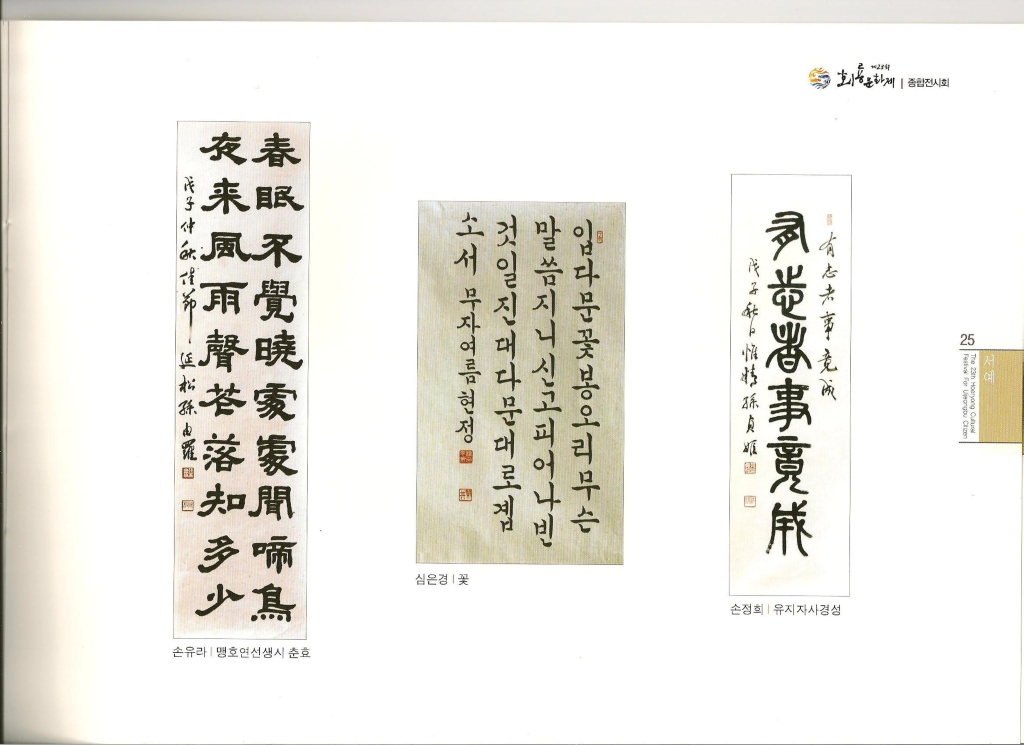 제23회 회룡문화제 | 종합전시회
春眠不覺曉處處聞啼鳥
夜来風雨聲花落知多少
戊子仲秋佳節 延松孫由羅
손유라 | 맹호연선생시 춘효
입다문꽃봉오리무슨
말씀지니신고피어나빈
것일진대다문대로곕
소서 무자여름현정
심은경 | 꽃
有志者事竟成
有志者事竟成
戊子秋日 孫貞姬
손정희 | 유지자사경성
25
서예
The 23th Hoeryong Cultural
Festival For Uijeongbu Citizen